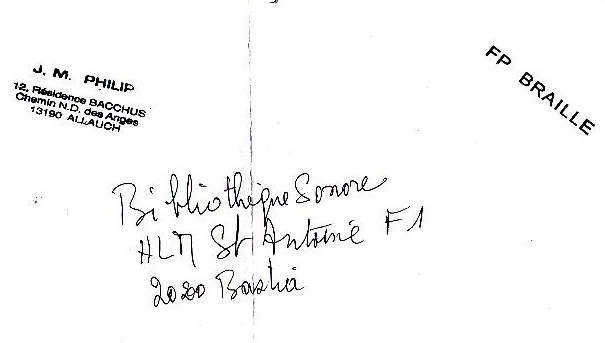 J. M. PHILIP
12, Résidence BACCHUS
Chemin N.D. des Anges
13190 ALLAUCH
FP BRAILLE
Bibliothèque Sonore
HLM St Antoine F1
20200 Bastia